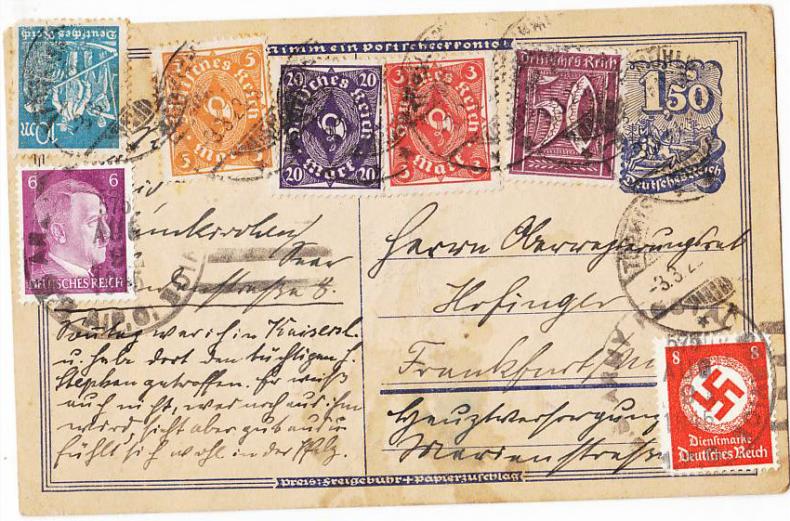 Nimm ein Postscheckkonto!
Deutsches Reich
10M
5 5
Deutsches Reich
5 Mark 5
20 20
Deutsches Reich
20 Mark 20
3 3
Deutsches Reich
3 Mark 3
Deutsches Reich
50
1,50
Deutsches Reich
6 6
DEUTSCHES REICH
A.P.O.
Saar
straße 8.
Sonntag war ich in Kaisersl.
u. habe dort den tüchtigen H.
Stephan getroffen. Er weiß
auch nicht, was noch aus ihm
wird, sieht aber gut aus u.
fühlt sich wohl in der Pfalz.
Herrn Oberregierungsrat
Hofinger
Frankfurt/M
Hauptversorgung
Marienstraße
-3.3.2
ARMY
8 8
Dienstmarke
Deutsches Reich
Preis: Freigebühr + Papierzuschlag